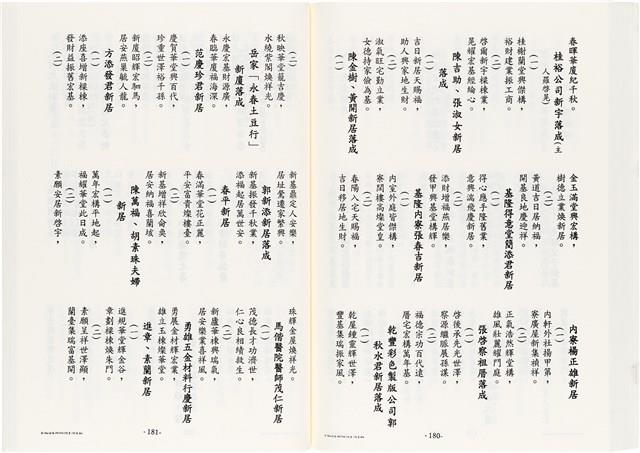 春暉華廈紀千秋。
桂裕公司新宇落成(主
人羅啓晃)
(一)
桂樹蘭堂興傑構,
裕財建業振工商。
(二)
啓爾新宇樑棟業,
晃耀宏基經綸心。
陳吉助、張淑女新居
落成
(一)
吉日新居天賜福,
助人興家地生財。
(二)
淑氣旺宅勤立業,
女德持家儉為基。
陳金樹、黃開新居落成
(一)
金玉滿堂興宏構,
樹德立業煥新居。
(二)
黃道吉日居納福,
開基良地慶迎祥。
基隆得意堂簡添君新居
(一)
得心應手隆舊業,
意興湍飛慶新居。
(二)
添財增福燕居樂,
發甲興基堂構輝。
基隆內寮張春吉新居
(一)
內室外庭皆傑構,
寮閣樓高燦堂皇。
(二)
春陽入宅天賜福,
吉日移居地生財。
內寮楊正雄新居
(一)
內軒外社揚甲第,
寮廣屋新集禎祥。
(二)
正氣浩然輝堂構,
雄風壯麗耀門庭。
張啓察祖厝落成
(一)
啓後承先光世澤,
察源繼脈展孫謀。
(二)
福德宗功百代遠,
厝宅宏構萬年基。
乾豐彩色製版公司郭
秋水君新居落成
(一)
乾屋鍾靈輝世澤,
豐基集瑞振家風。
-180-
(二)
秋映華堂龍吉慶,
水繞紫閣煥祥光。
岳家「永春土豆行」
新廈落成
永慶宏基財源廣,
春臨華廈福海深。
范慶珍君新居
(一)
慶賀華堂興百代,
珍重世澤裕千孫。
(二)
新廈昭輝宏駟馬,
居安燕巢毓人龍。
方添發君新居
(一)
添座喜增新樑棟,
發財益振舊宏基。
(二)
新基鼎定人安樂,
居址鶯遷家繁興。
郭新添新居落成
新基振發千秋業,
添福起居萬世安。
春平新居
(一)
春滿華堂花正麗,
平安富貴燦樓臺。
(二)
新基增祥欣命奐,
居安納福喜蘭坡。
陳萬福、胡素珠夫婦
新居
(一)
萬年宏構平地起,
福耀華堂此日成。
(二)
素願安居新啓宇,
珠輝金屋煥祥光。
馬偕醫院醫師茂仁新居
(一)
茂德長才功濟世,
仁心良相績救生。
(二)
新廬華棟興瑞氣,
居安樂業喜祥風。
勇雄五金材料行慶新居
勇展金材輝宏業,
雄立玉棟燦華堂。
進章、素蘭新居
(一)
進規華堂輝金谷,
章劃樑棟煥朱門。
(二)
素願呈祥世澤顯,
蘭臺集瑞富基開。
-181-